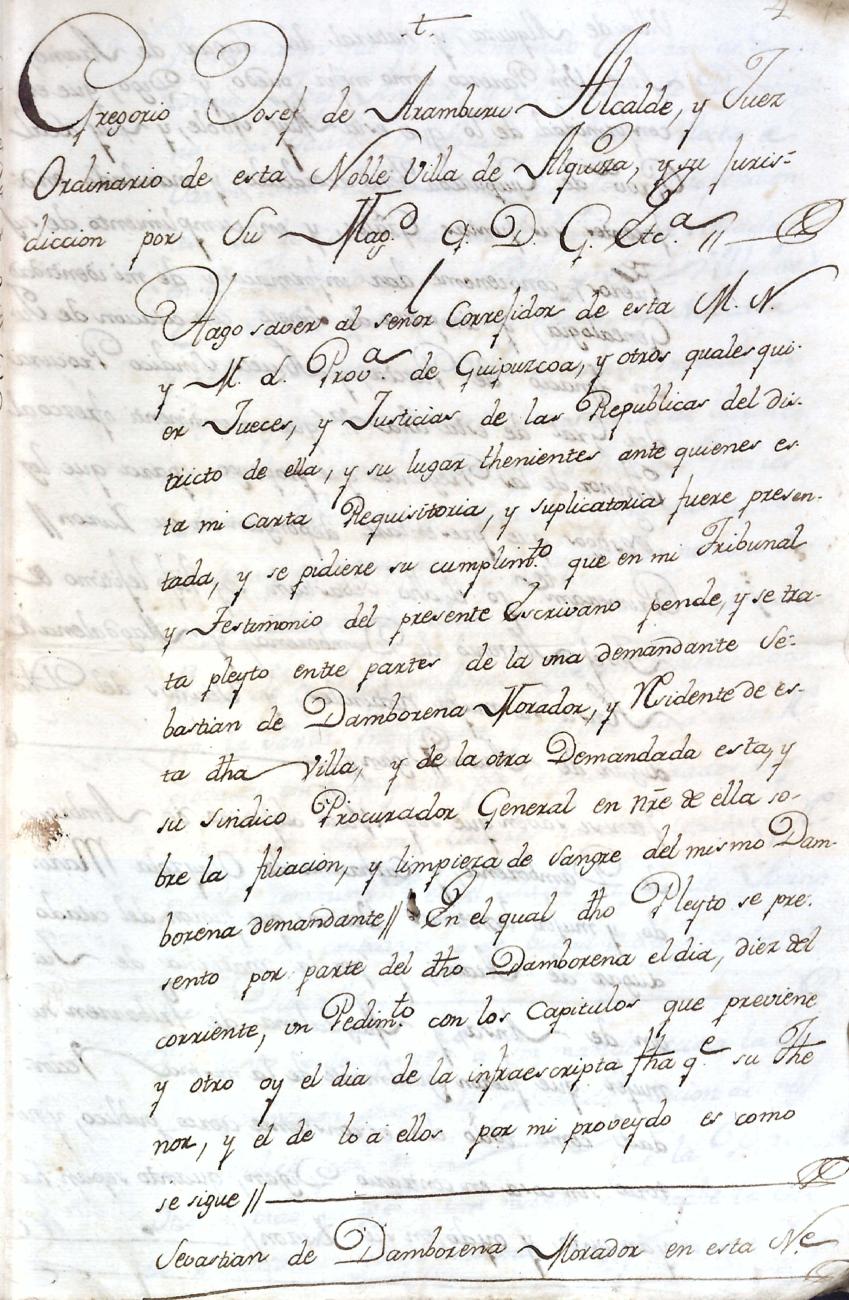 4
t.
Gregorio Josef de Aramburu Alcalde, y Juez
Ordinario de esta Noble Villa de Alquiza, y su Juris=
diccion por Su Mag.d q. D. G. Etc.a //
Hago saver al señor Correjidor de esta M. N.
y M. L. Prov.a de Guipuzcoa, y otros quales qui-
er Jueces, y Justicias de las Republicas del dis-
tricto de ella, y su lugar thenientes ante quienes es-
ta mi Carta Requisitoria, y suplicatoria fuere presen-
tada, y se pidiere su cumplim.to que en mi Tribunal
y Testimonio del presente Escrivano pende, y se tra-
ta pleyto entre partes de la vna demandante Se-
bastian de Damborena Morador, y Residente de es-
ta dha Villa, y de la otra Demandada esta, y
su sindico Procurador General en nre de ella so-
bre la filiacion, y limpieza de sangre del mismo Dam-
borena demandante // En el qual dho Pleyto se pre-
sento por parte del dho Damborena el dia, diez del
corriente, vn Pedim.to con los Capitulos que previene
y otro oy el dia de la infraescripta fha q.e su The
nor, y el de lo a ellos por mi proveydo es como
se sigue //
Sevastian de Damborena Morador en esta Ne